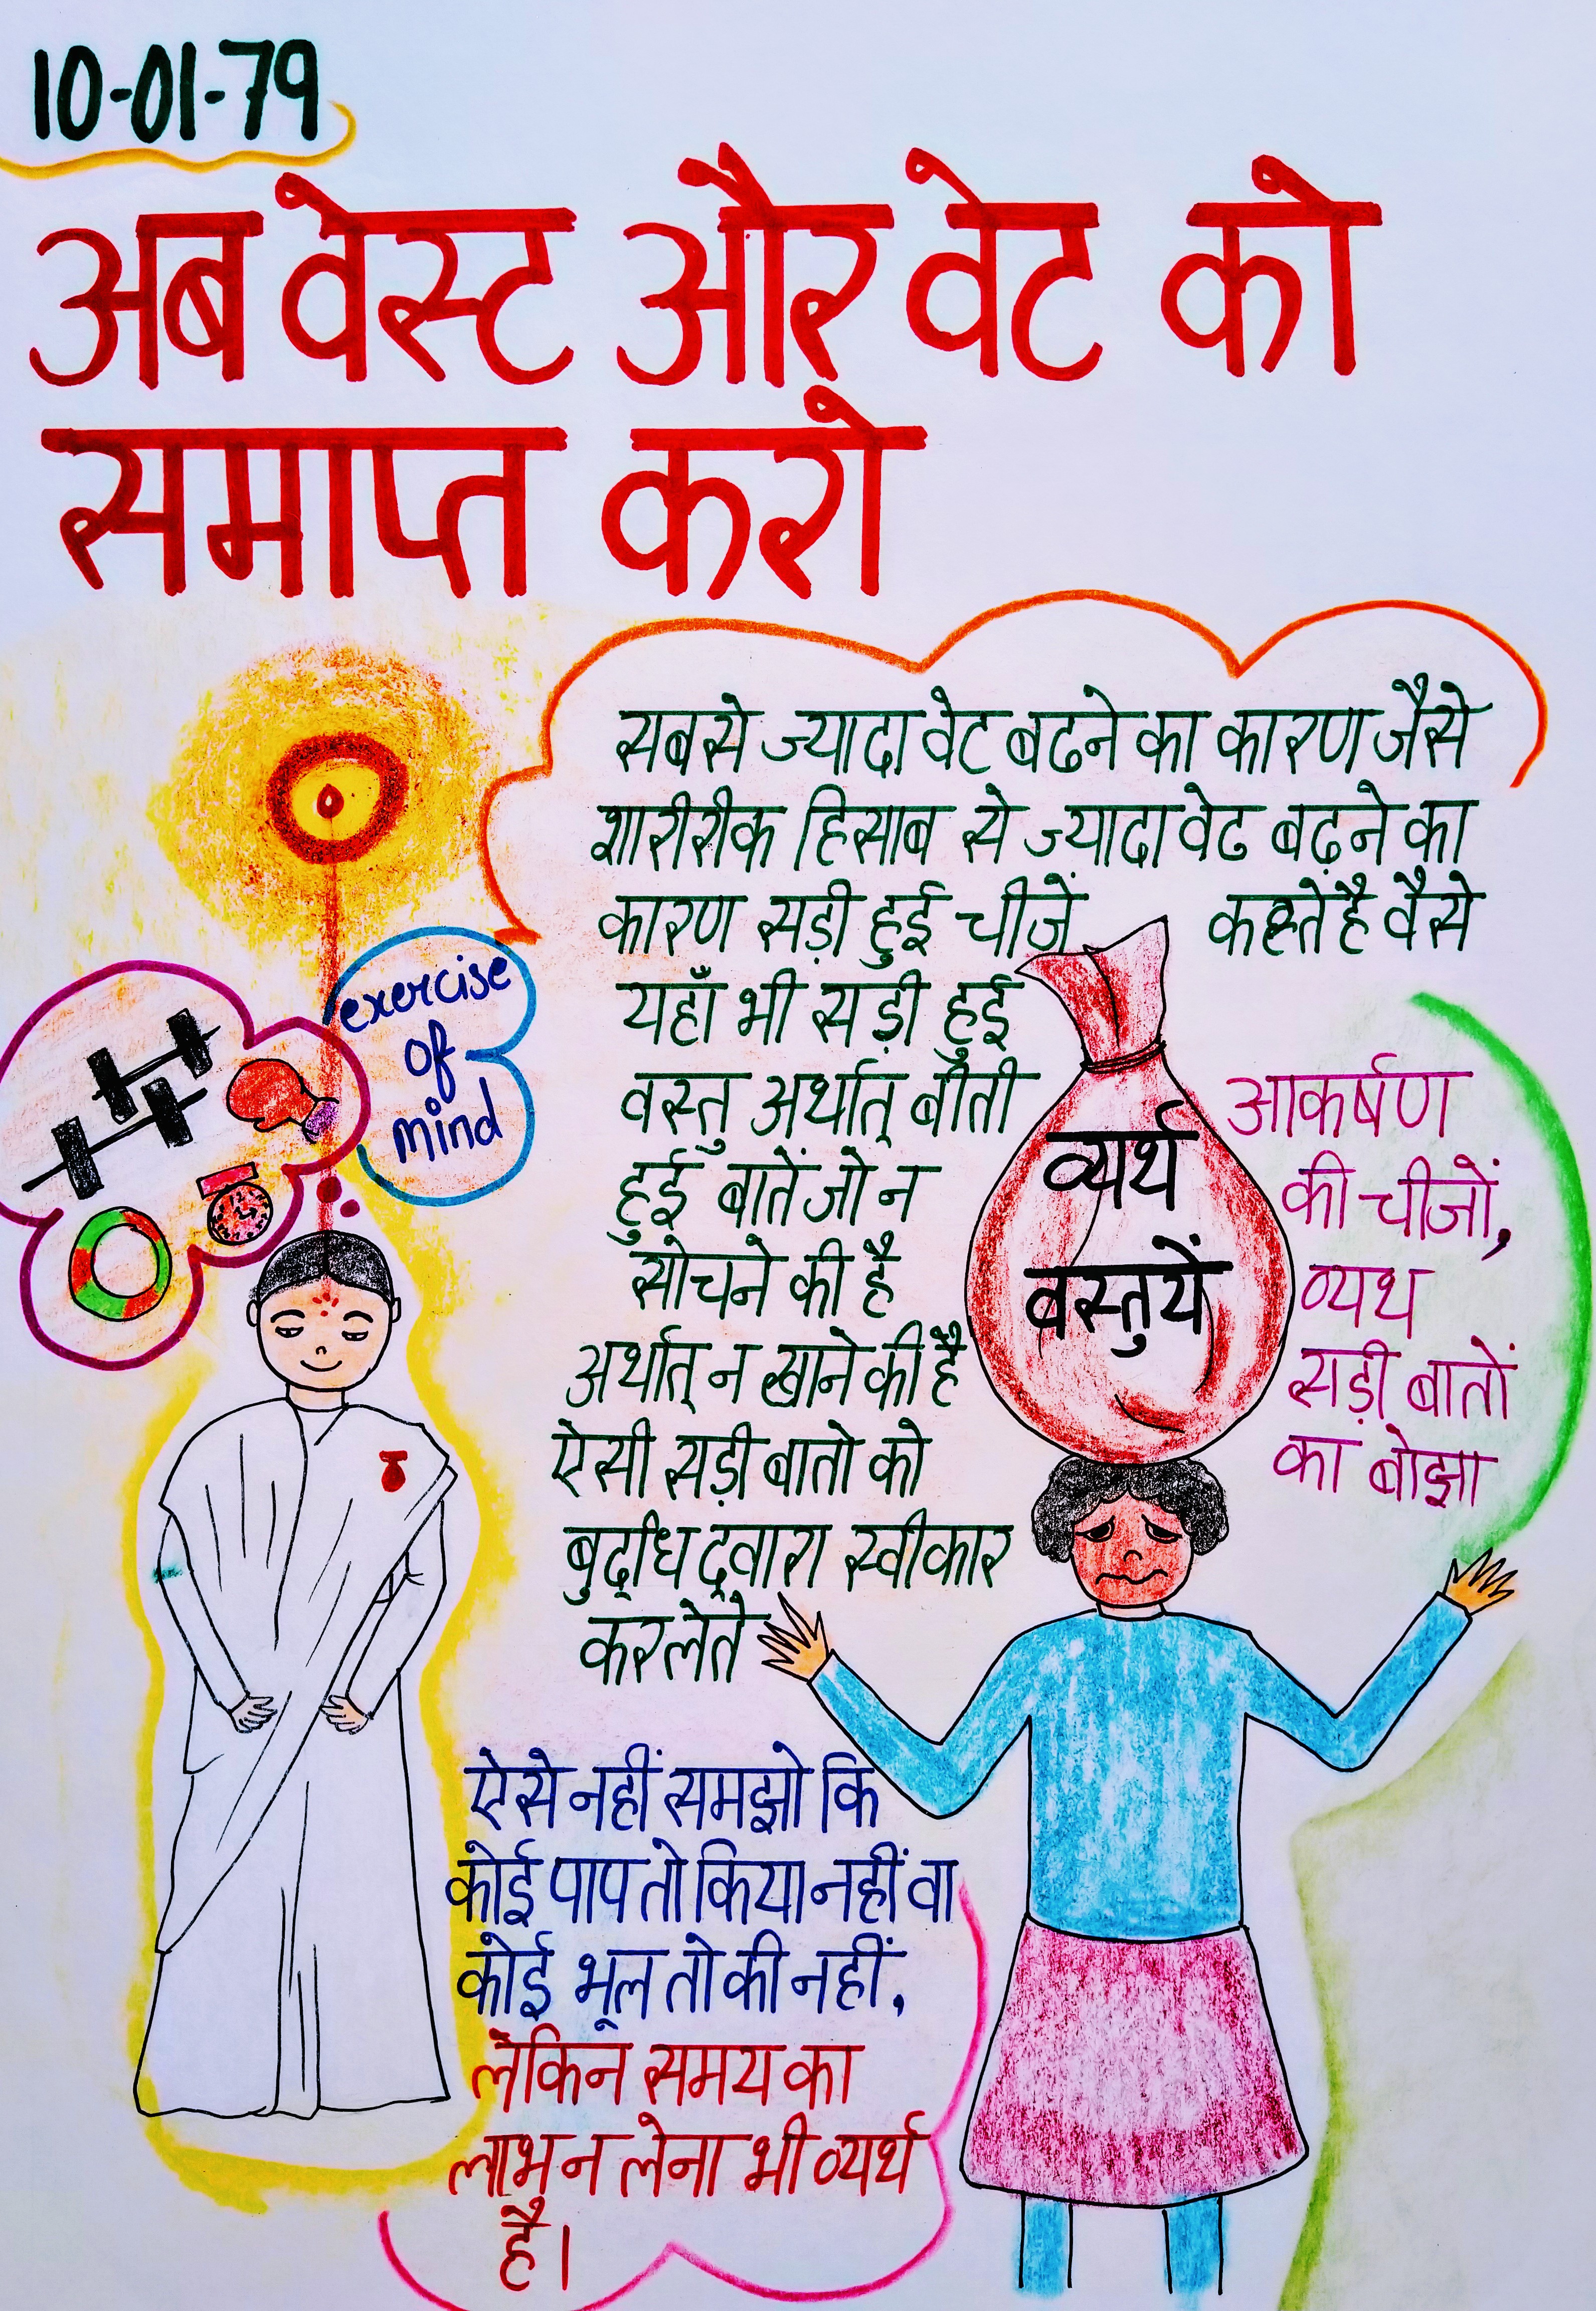 10-01-79
अब वेस्ट और वेट को
समाप्त करो
सबसे ज्यादा वेट बढने का कारण जैसे
शारीरीक हिसाब से ज्यादा वेट बढ़ने का
कारण सड़ी हुई चीजें कहते है वैसे
यहाँ भी सड़ी हुई
वस्तु अर्थात् बीती
हुई बातें जो न
सोचने की है
अर्थात् न खाने की है
ऐसी सड़ी बातो को
बुद्धि द्वारा स्वीकार
कर लेते
exercise
of
mind
व्यर्थ
वस्तुयें
आकर्षण
की चीजों,
व्यथ
सड़ी बातों
का बोझा
ऐसे नहीं समझो कि
कोई पाप तो किया नहीं वा
कोई भूल तो की नहीं.
लेकिन समय का
लाभ न लेना भी व्यर्थ
है।